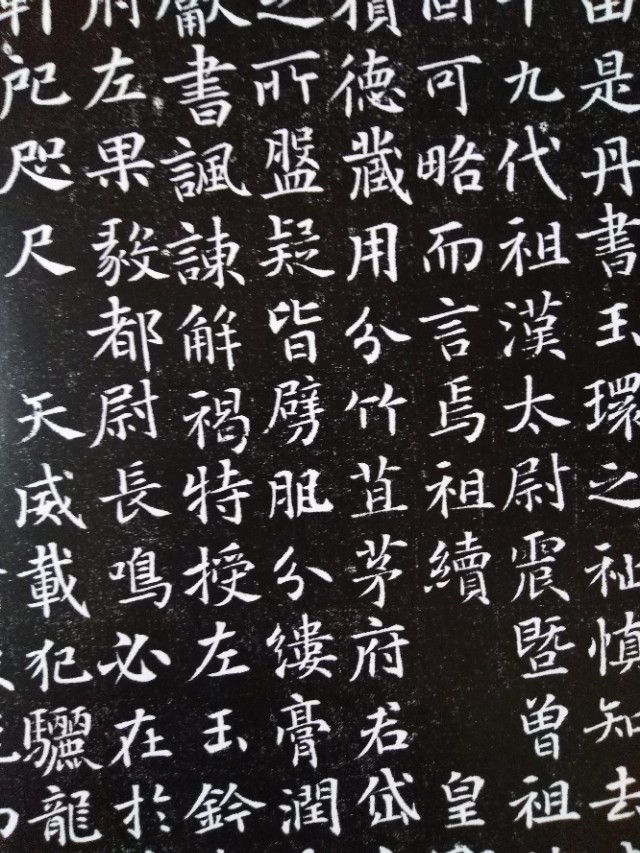 由是丹書玉環之祉慎知去
九代祖漢太尉震暨曾祖
固可略而言焉祖續 皇
積德藏用分竹苴茅府君岱
之所盤疑皆劈肌分縷膏潤
獻書諷諫解褐特授左玉鈐
府左果毅都尉長鳴必在於
軒戺咫尺 天威載犯驪龍